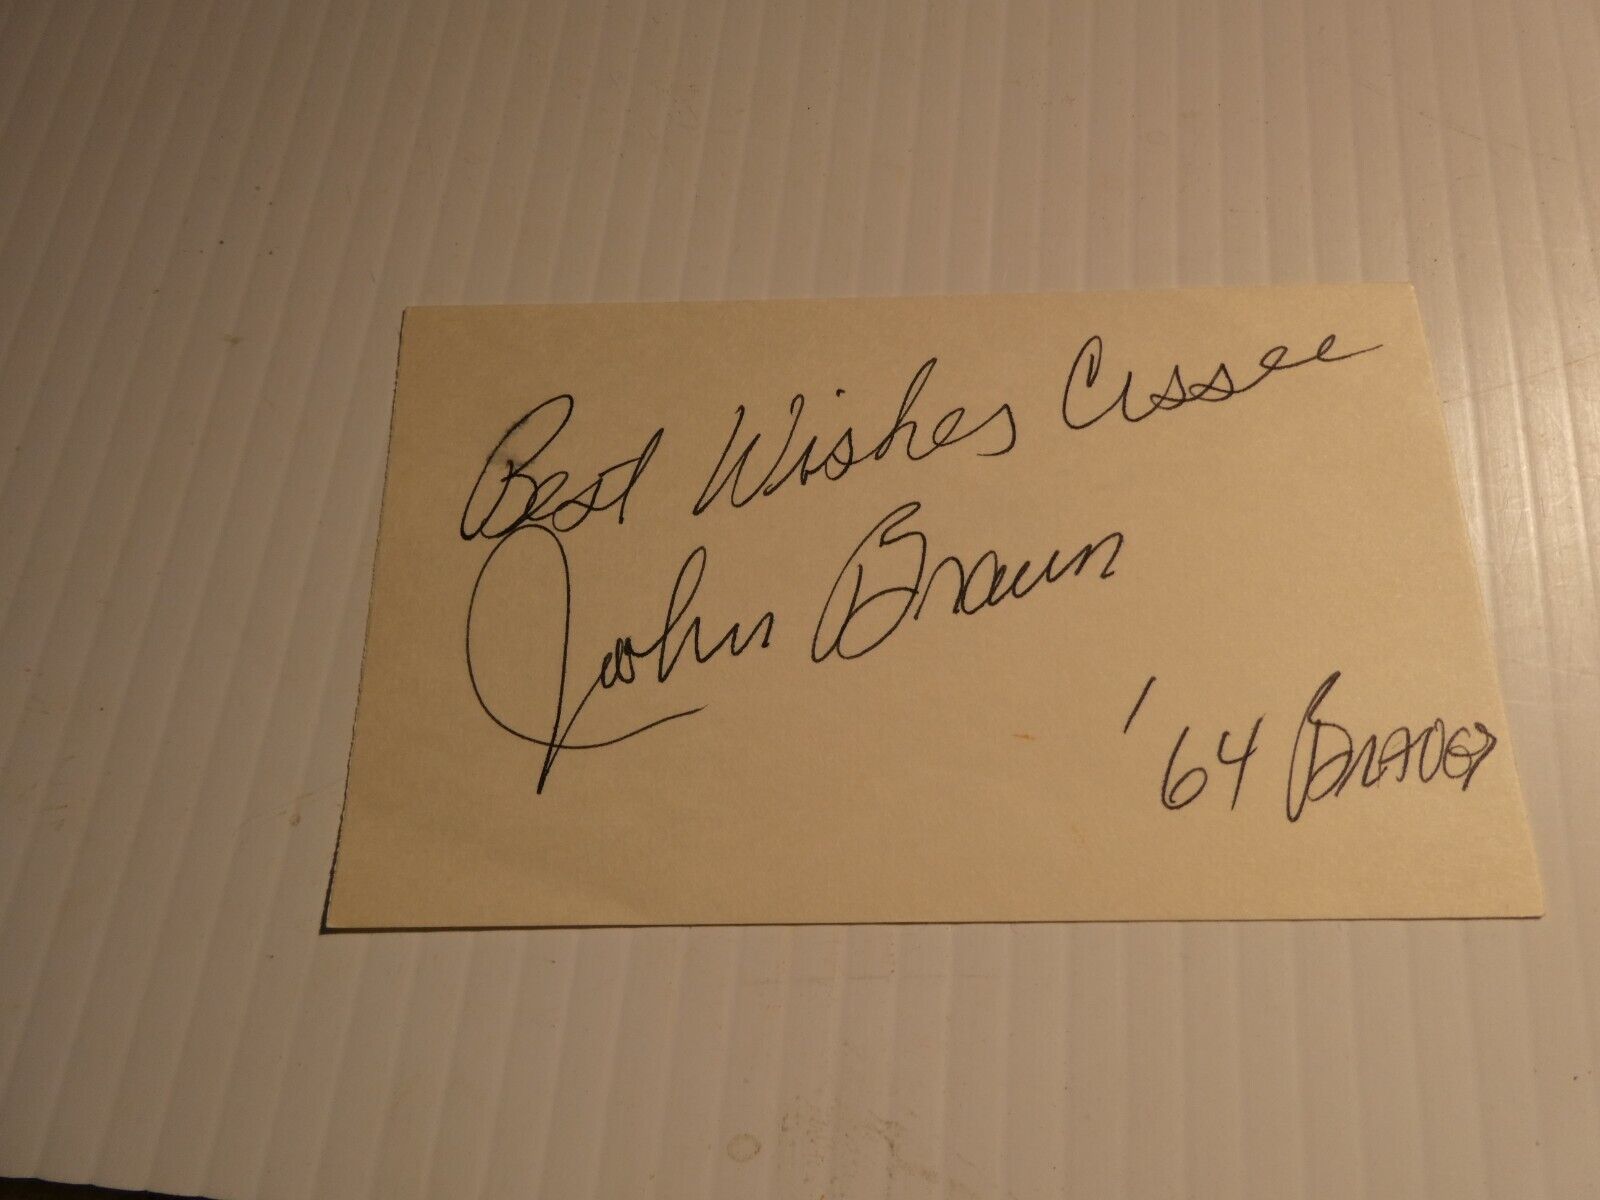 Best Wishes Cissee
John Braun
'64 BRAVES